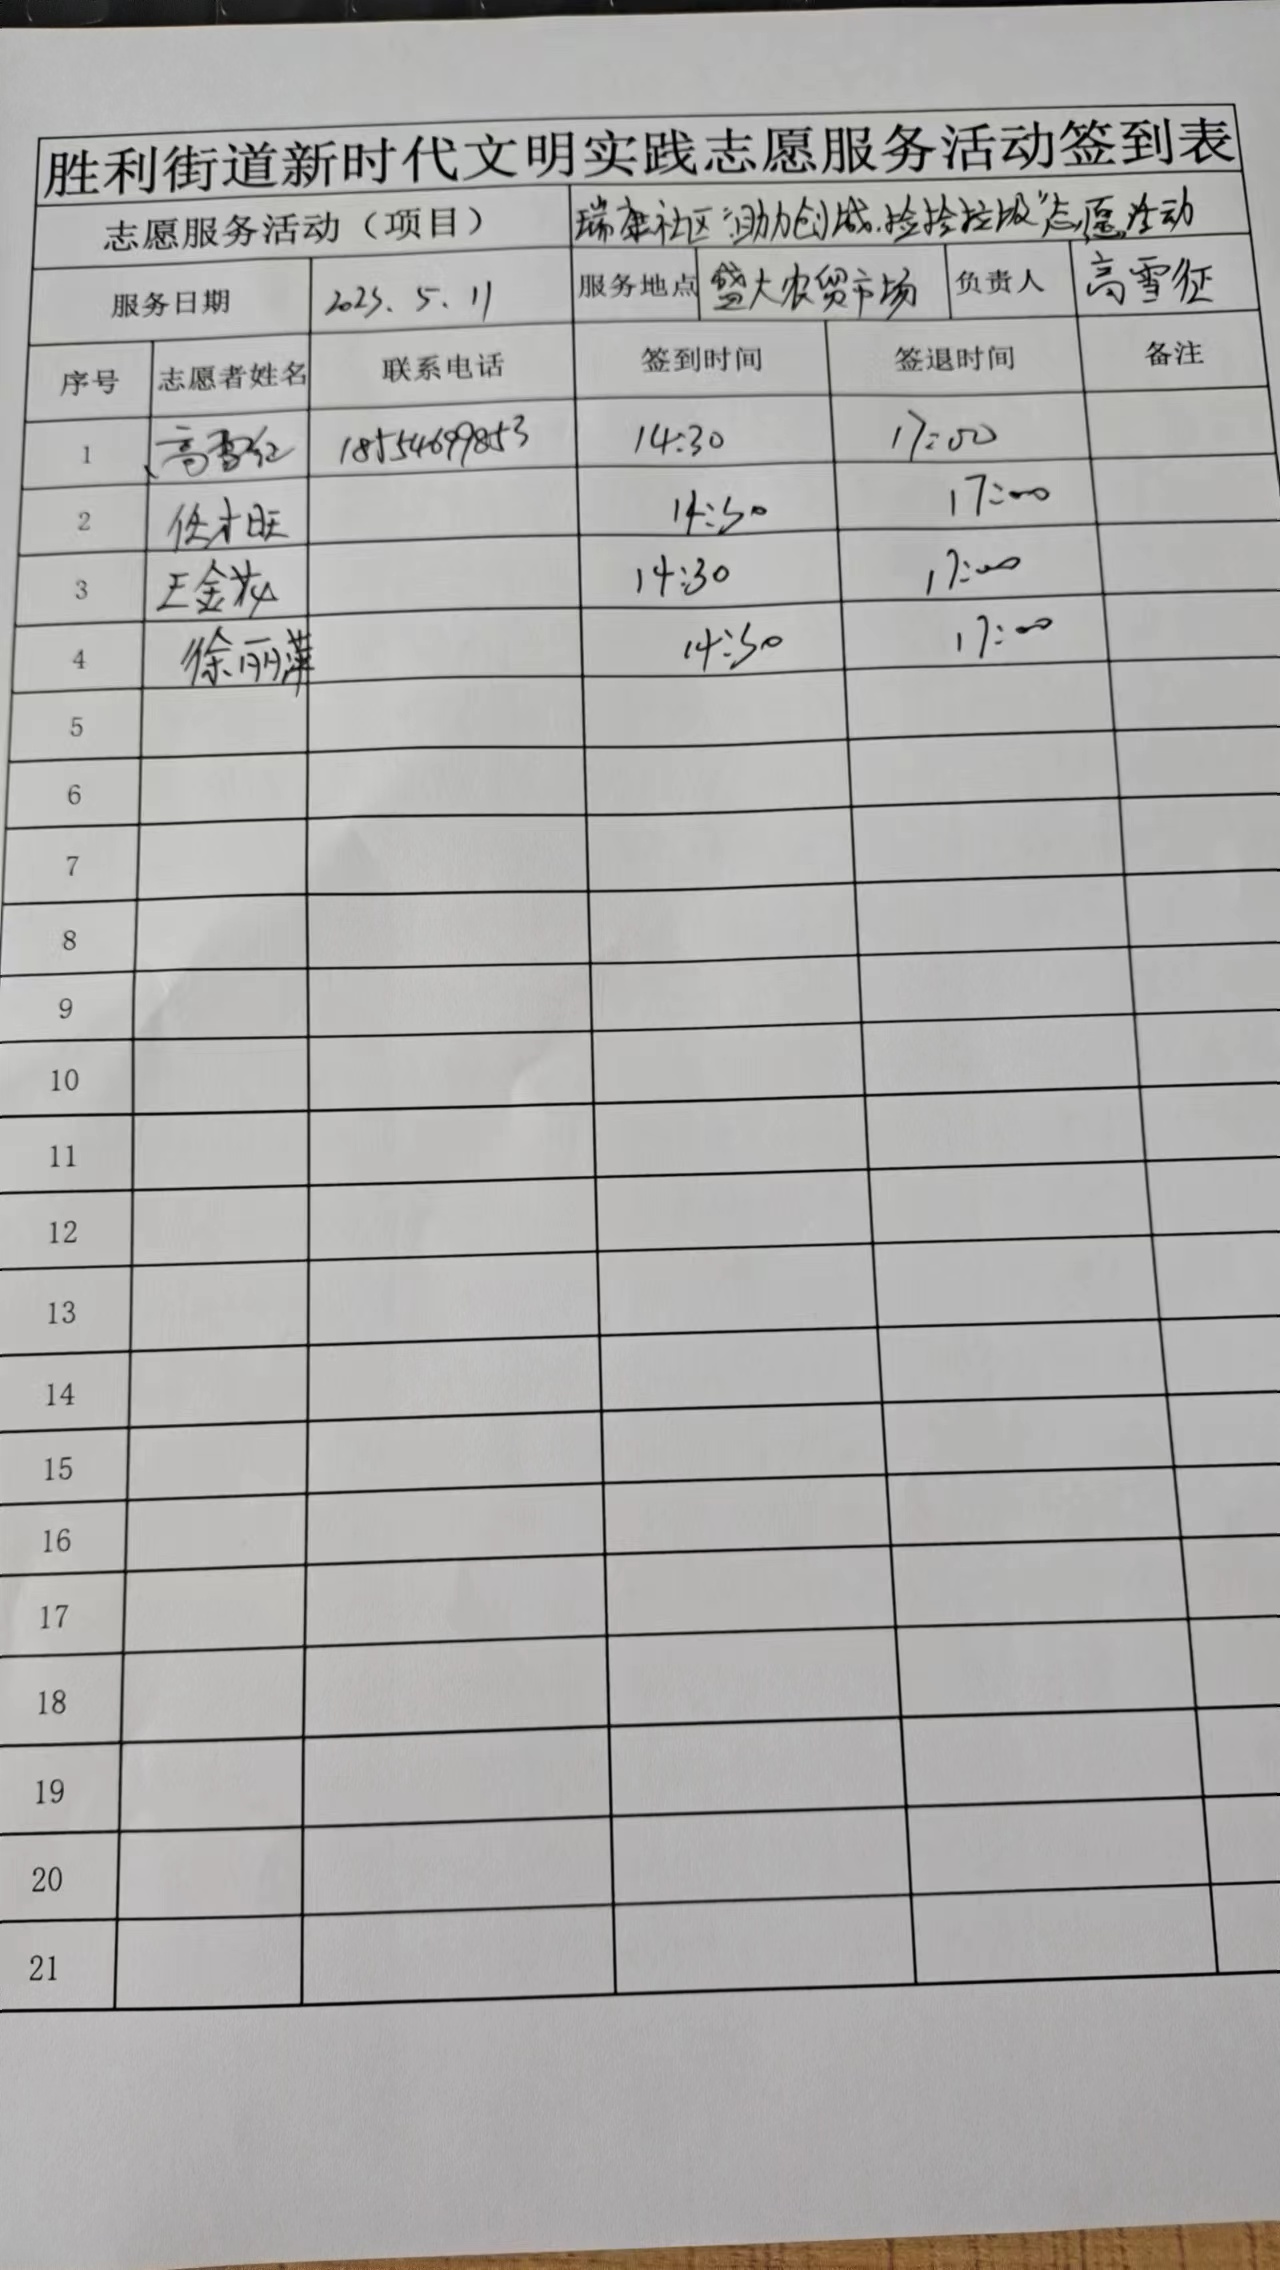 胜利街道新时代文明实践志愿服务活动签到表
志愿服务活动（项目） 瑞康社区“助力创城,捡拾垃圾”志愿活动
服务日期 2023.5.11 服务地点 盛大农贸市场 负责人 高雪征
序号 志愿者姓名 联系电话 签到时间 签退时间 备注
1 高雪征 18554699853 14:30 17:00
2 任才旺 14:30 17:00
3 王金 14:30 17:00
4 徐丽萍 14:30 17:00
5
6
7
8
9
10
11
12
13
14
15
16
17
18
19
20
21